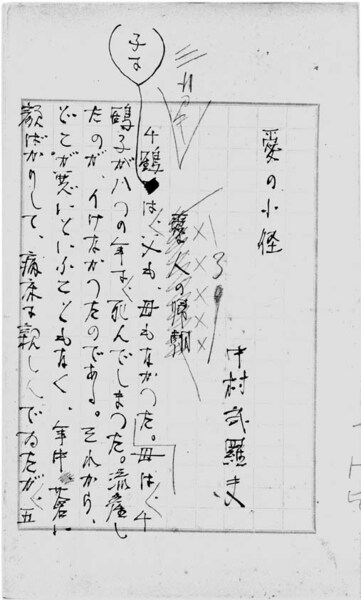 愛の小径
中村武羅夫
3
子に
千鶴は、父も、母もなかつた。母は、千
鶴子が八つの年に、死んでしまつた。流産し
たのが、いけなかつたのである。それから、
どこが悪いといふこともなく、年中蒼い
顔ばかりして、病床に親しんでゐたが、五